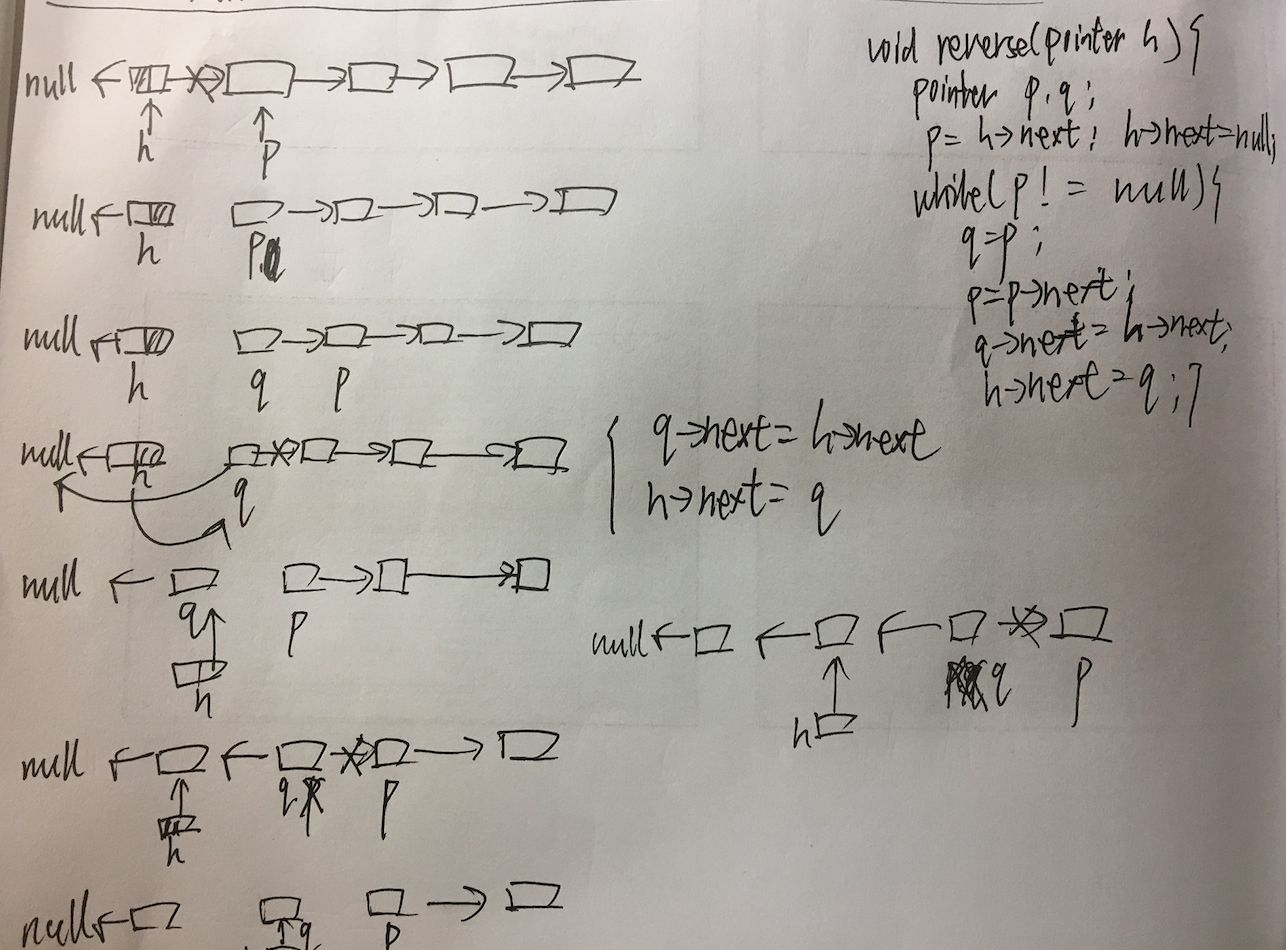 void reverse(pointer h){
pointer p,q;
p= h→next; h→next=null;
while(p!= null){
q=p;
p=p→next;
q→next= h→next;
h→next=q;}
null
h
p
null
h
p
null
h
q
p
null
h
q
q→next= h→next
h→next= q
null
q
p
h
null
q
p
h
null
q
p
h
null
q
p